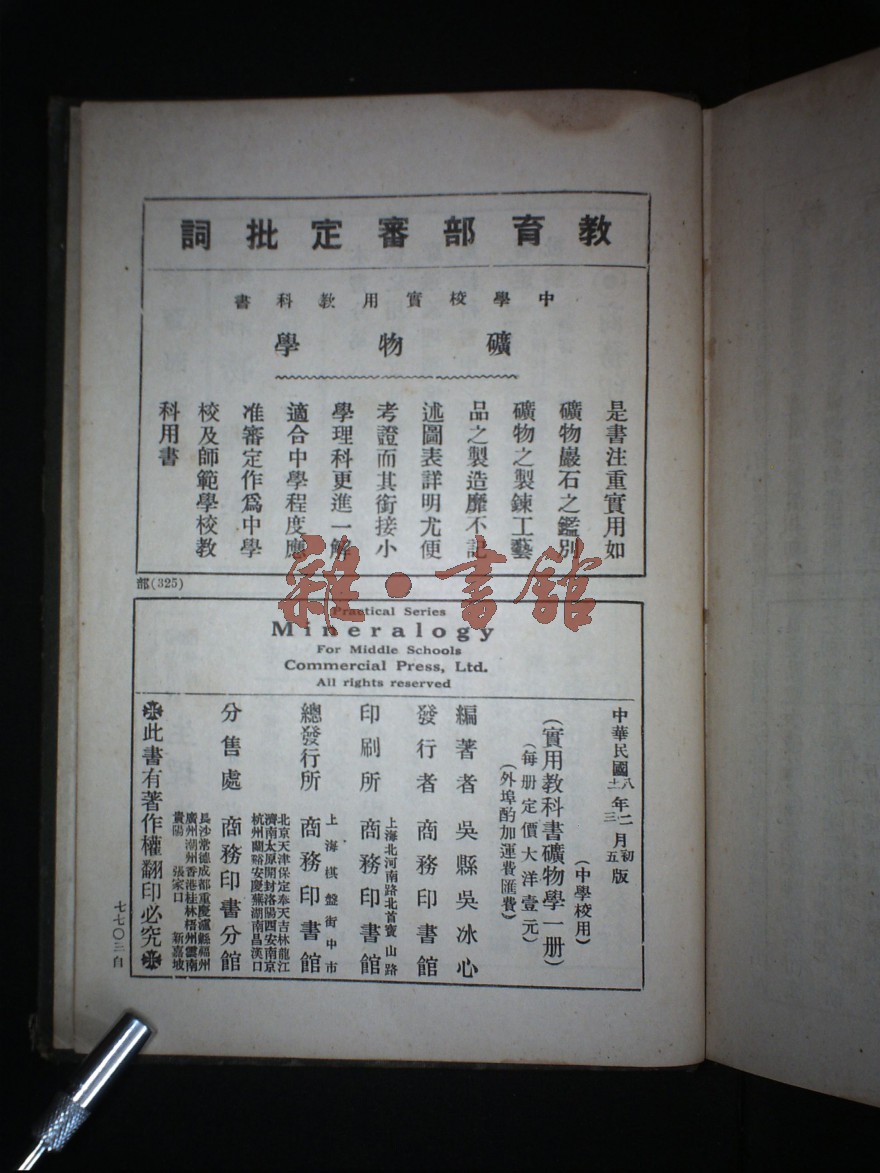 教育部審定批詞
中學校實用教科書
礦物學
是書注重實用如
礦物巖石之鑑別
礦物之製鍊工藝
品之製造靡不記
述圖表詳明尤便
考證而其銜接小
學理科更進一解
適合中學程度應
准審定作爲中學
校及師範學校教
科用書
部(325)
雜·書館
Practical Series
Mineralogy
For Middle Schools
Commercial Press, Ltd.
All rights reserved
中華民國八年二月初版
十一年三月五版
(中學校用)
(實用教科書礦物學一册)
(每册定價大洋壹元)
(外埠酌加運費匯費)
編著者 吳縣吳冰心
發行者 商務印書館
上海北河南路北首寶山路
印刷所 商務印書館
上海棋盤街中市
總發行所 商務印書館
北京天津保定奉天吉林龍江
濟南太原開封洛陽西安南京
杭州蘭谿安慶蕪湖南昌漢口
分售處 商務印書分館
長沙常德成都重慶瀘縣福州
廣州潮州香港桂林梧州雲南
貴陽 張家口 新嘉坡
此書有著作權翻印必究
七七〇三自